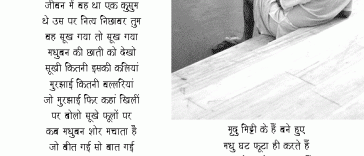 जीवन में वह था एक कुसुम
थे उस पर नित्य निछावर तुम
वह सूख गया तो सूख गया
मधुबन की छाती को देखो
सूखी कितनी इसकी कलियां
मुरझाई कितनी बल्लरियां
जो मुरझाई फिर कहां खिलीं
पर बोलो सूखे फूलों पर
कब मधुबन शोर मचाता है
जो बीत गई सो बात गई
मृदु मिट्टी के हैं बने हुए
मधु घट फूटा ही करते हैं